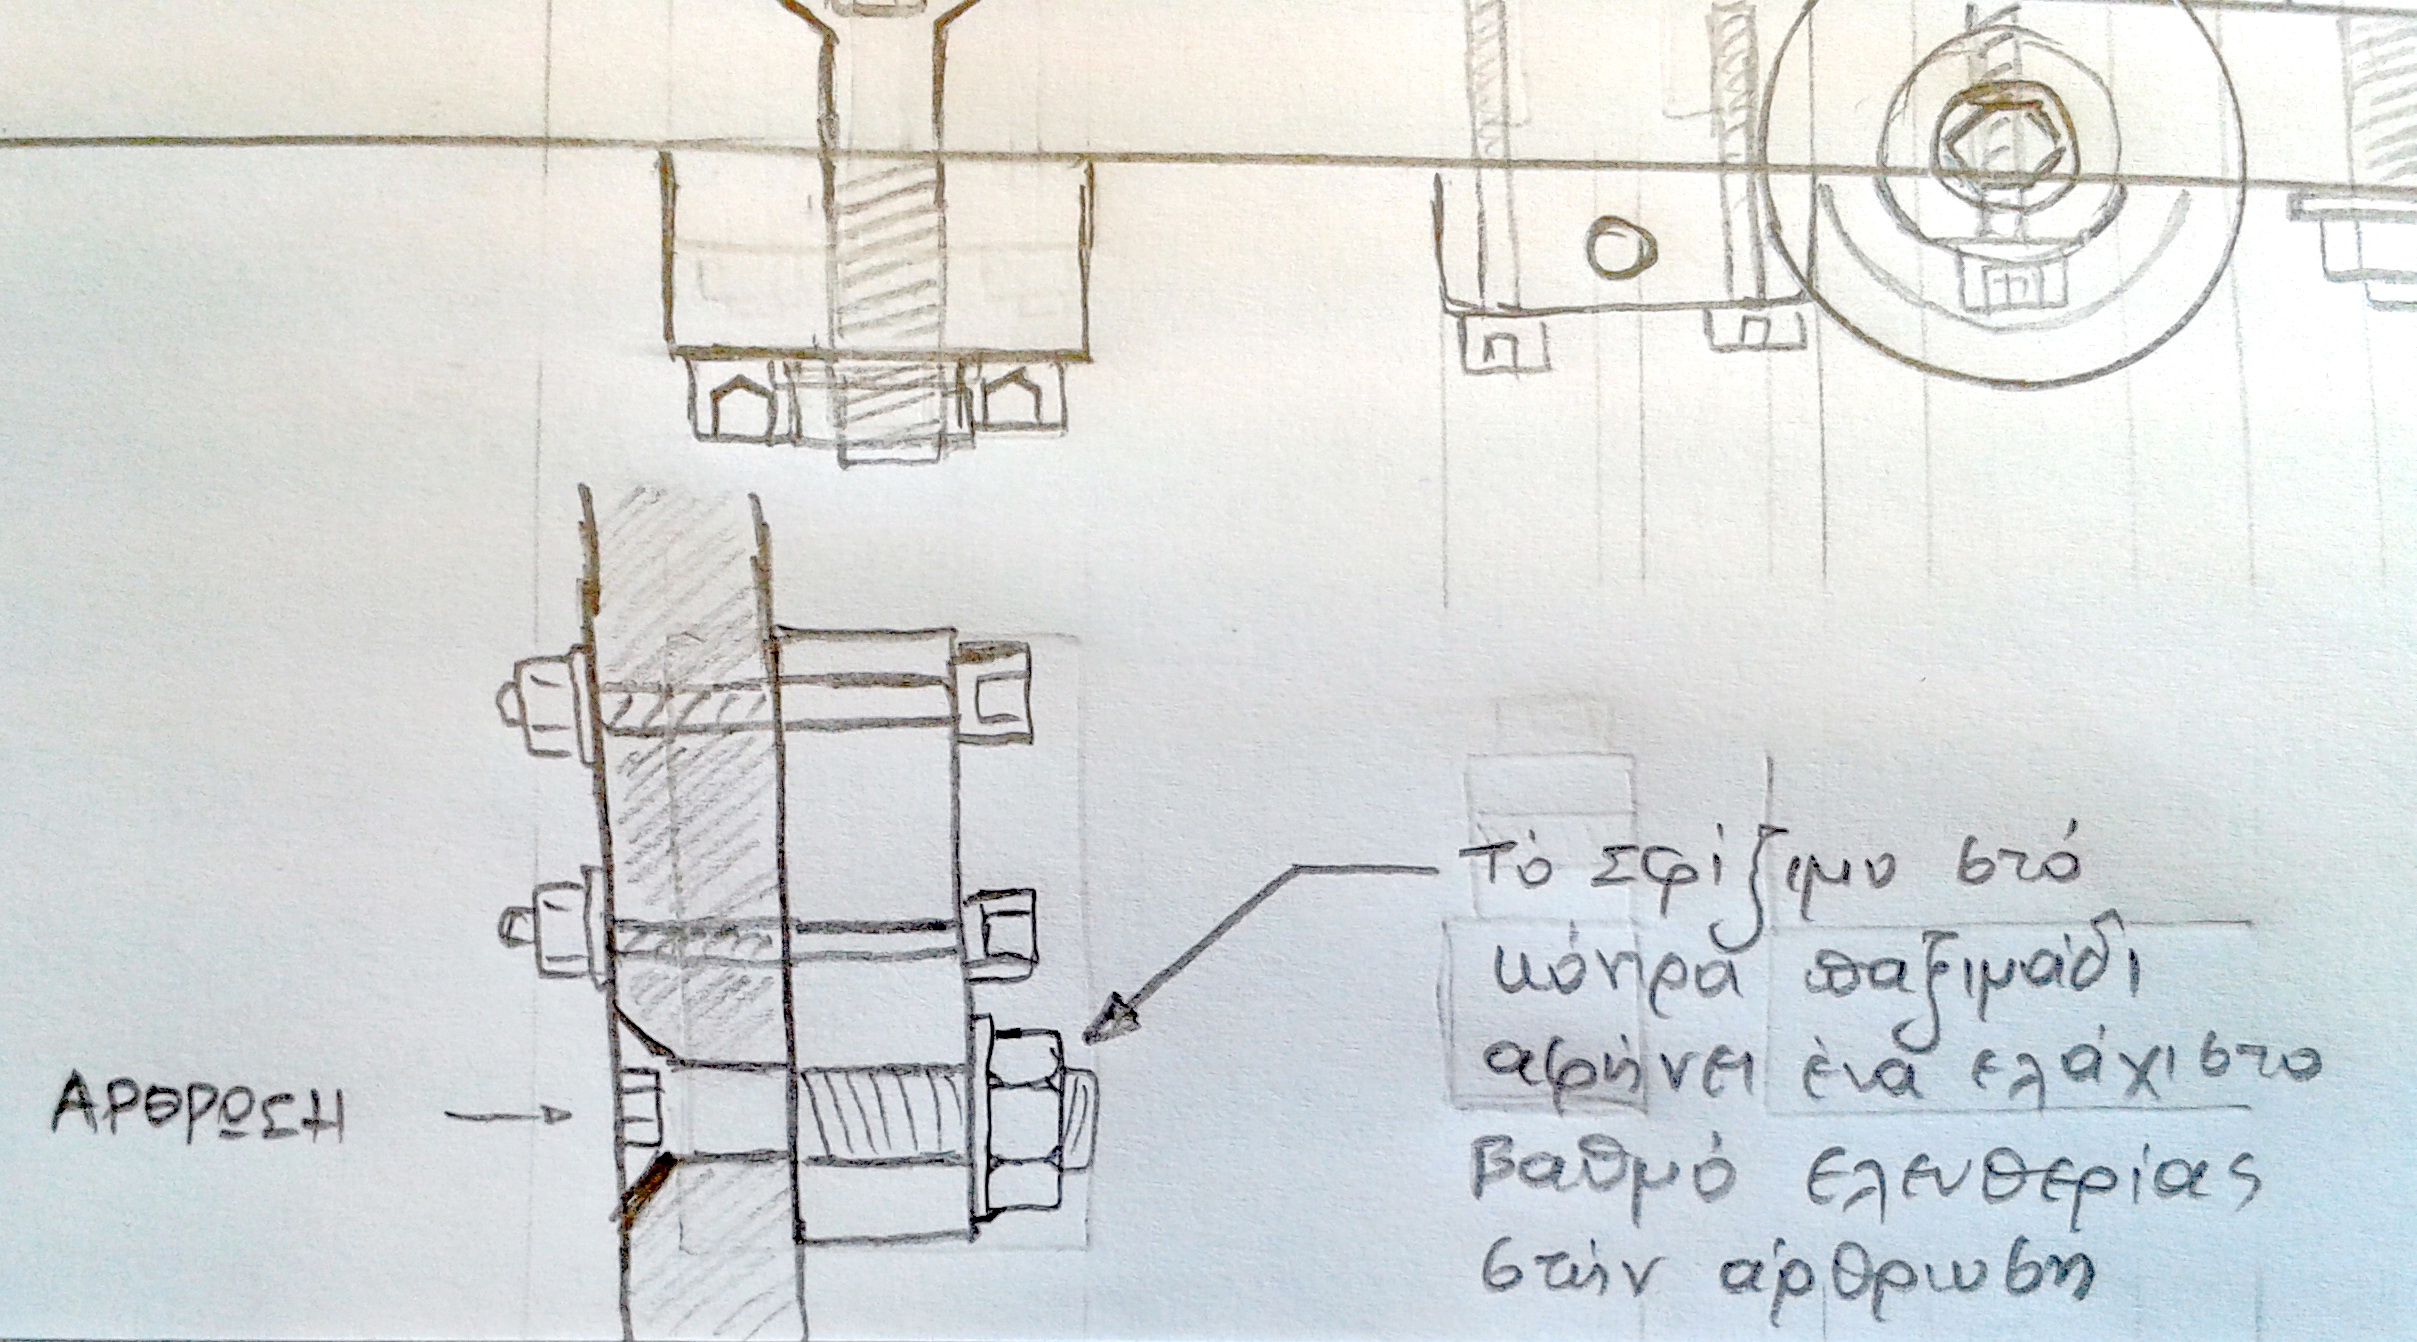 ΑΡΘΡΩΣΗ
Τό Σφίξιμο στό
κόντρα παξιμάδι
αφήνει ένα ελάχιστο
βαθμό ελευθερίας
στήν άρθρωση